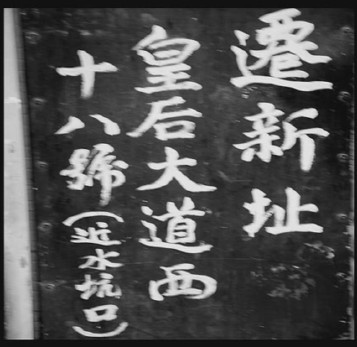 遷新址
皇后大道西
十八號（近水坑口）